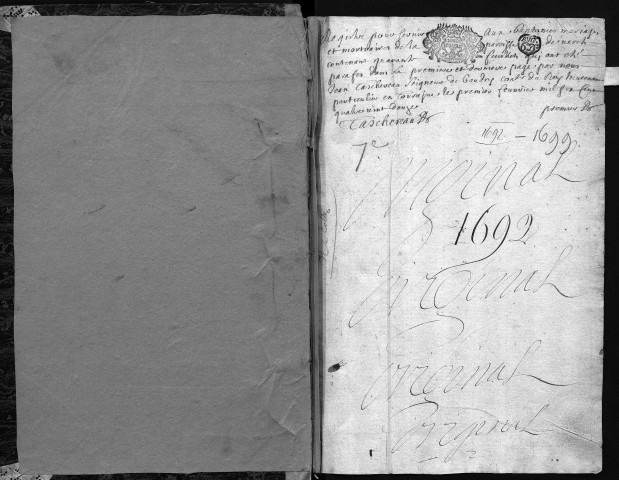 Registre pour servir aux baptemes mariages
et mortuaires de la paroisse de
contenant quarante feuillets qui ont esté
parafez dans la premiere et derniere page par nous
Jean Taschereau Seigneur de Baudry conser du Roy lieutenant
particulier en Touraine le premier Janvier mil six cent
quatrevint douze
Taschereau premier
1692 - 1699
7e
original
1692
original
original
original